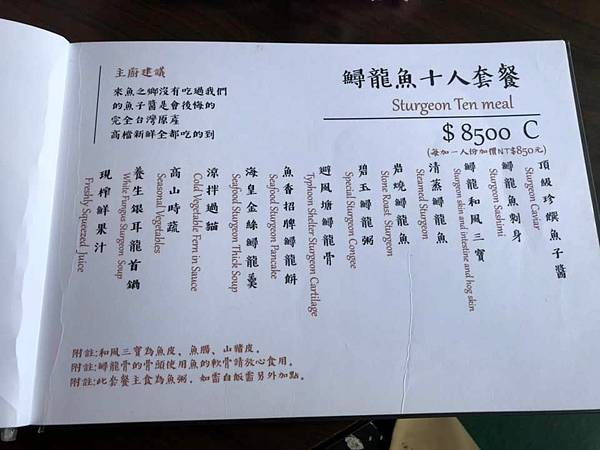 鱘龍魚十人套餐
Sturgeon Ten meal
$8500 C
(每加一人份加價NT$850元)
主廚建議
來魚之鄉沒有吃過我們
的魚子醬是會後悔的
完全台灣原產
高檔新鮮全都吃的到
頂級珍饌魚子醬
Sturgeon Caviar
鱘龍魚刺身
Sturgeon Sashimi
鱘龍和風三寶
Sturgeon skin and intestine and hog skin
清蒸鱘龍魚
Steamed Sturgeon
岩燒鱘龍魚
Stone Roast Sturgeon
碧玉鱘龍粥
Special Sturgeon Congee
避風塘鱘龍骨
Typhoon Shelter Sturgeon Cartilage
魚香招牌鱘龍餅
Seafood Sturgeon Pancake
海皇金絲鱘龍羹
Seafood Sturgeon Thick Soup
涼拌過貓
Cold Vegetable Fern in Sauce
高山時蔬
Seasonal Vegetables
養生銀耳龍首鍋
White Fungus Sturgeon Soup
現榨鮮果汁
Freshly Squeezed Juice
附註:和風三寶為魚皮、魚腸、山豬皮。
附註:鱘龍骨的骨頭使用魚的軟骨請放心食用。
附註:此套餐主食為魚粥，如需白飯需另外加點。